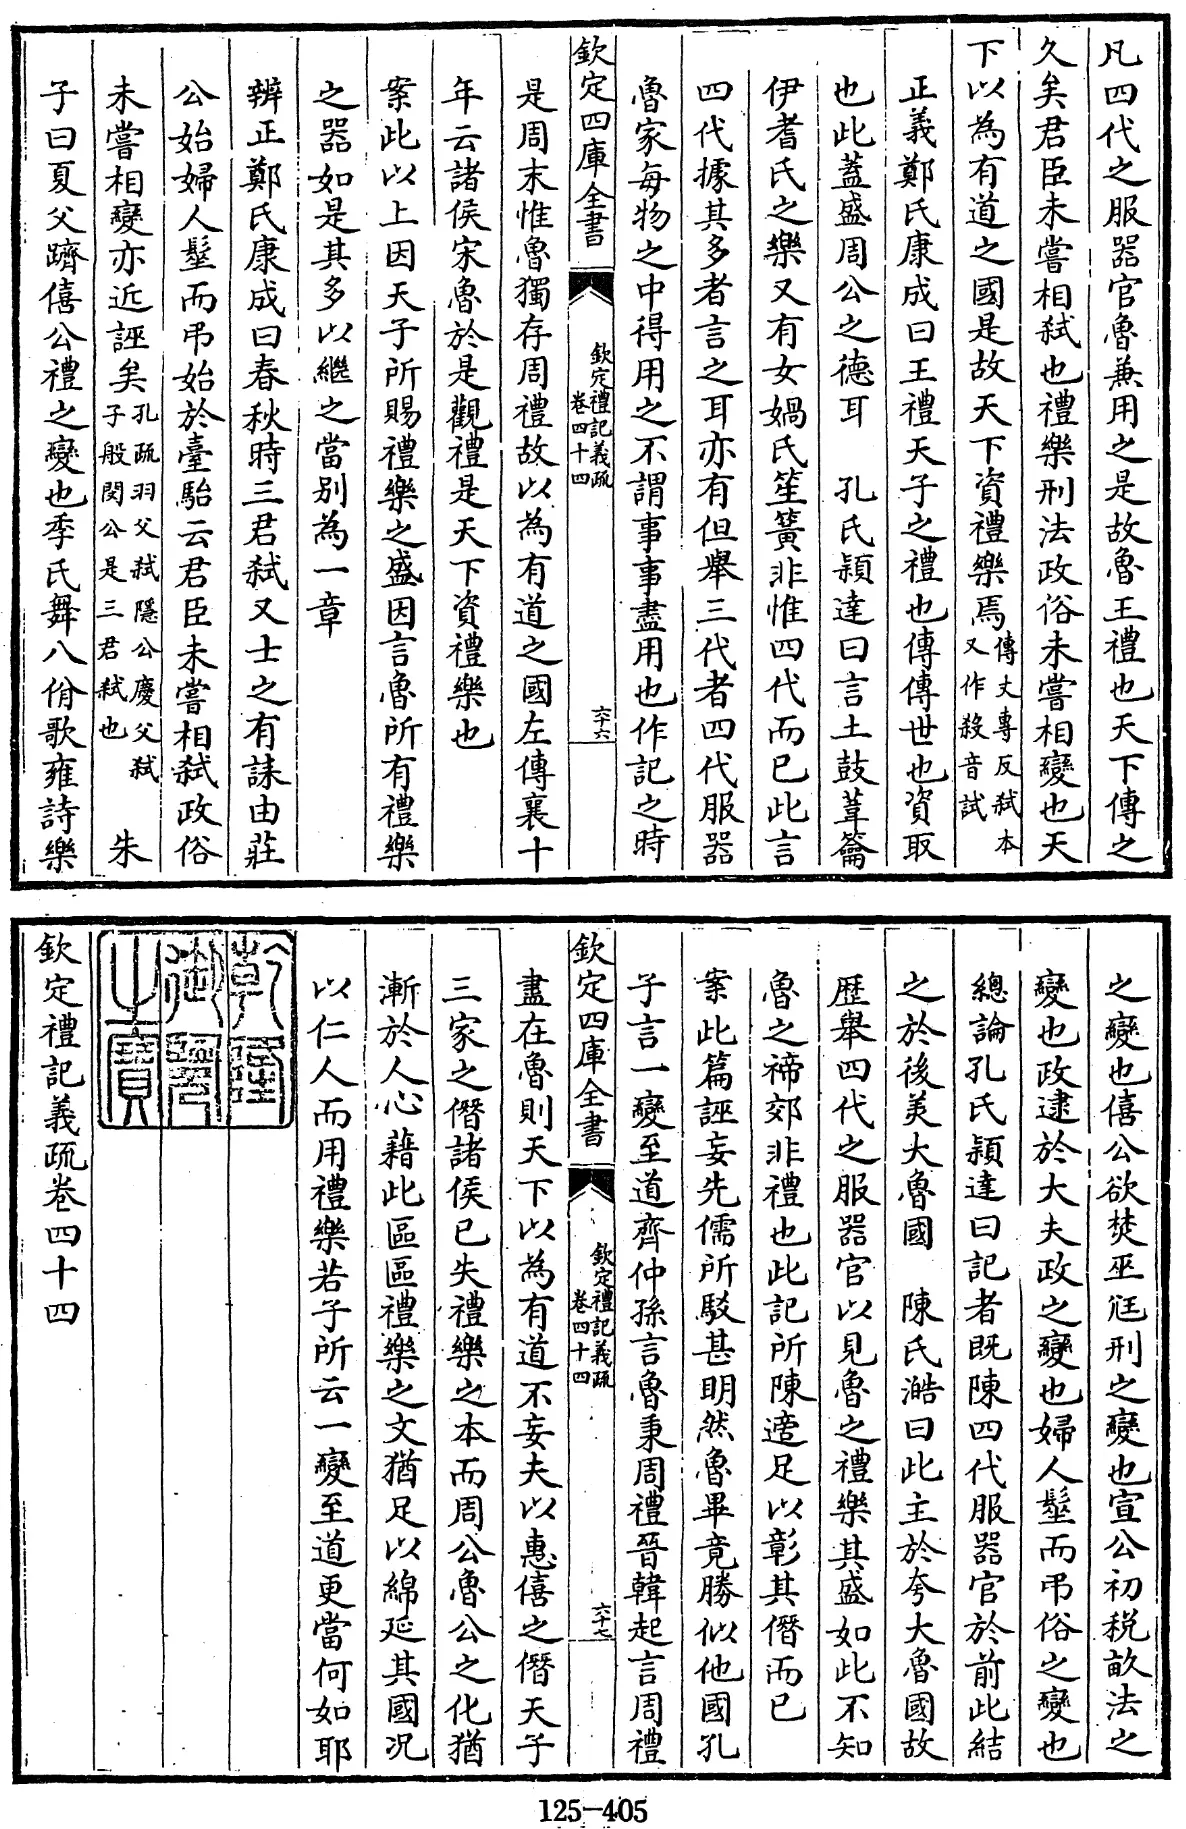 凡四代之服器官魯兼用之是故魯王禮也天下傳之
久矣君臣未嘗相弑也禮樂刑法政俗未嘗相變也天
下以為有道之國是故天下資禮樂焉傳丈專反弑本又作殺音試
正義鄭氏康成曰王禮天子之禮也傳傳世也資取
也此蓋盛周公之德耳　孔氏穎達曰言土鼓葦籥
伊耆氏之樂又有女媧氏笙簧非惟四代而已此言
四代據其多者言之耳亦有但舉三代者四代服器
魯家每物之中得用之不謂事事盡用也作記之時
欽定四庫全書　欽定禮記義疏卷四十四　六十六
是周末惟魯獨存周禮故以為有道之國左傳襄十
年云諸侯宋魯於是觀禮是天下資禮樂也
案此以上因天子所賜禮樂之盛因言魯所有禮樂
之器如是其多以繼之當別為一章
辨正鄭氏康成曰春秋時三君弑又士之有誄由莊
公始婦人髽而弔始於臺駘云君臣未嘗相弑政俗
未嘗相變亦近誣矣孔疏羽父弑隱公慶父弑子般閔公是三君弑也　朱
子曰夏父躋僖公禮之變也季氏舞八佾歌雍詩樂
之變也僖公欲焚巫尪刑之變也宣公初稅畝法之
變也政逮於大夫政之變也婦人髽而弔俗之變也
總論孔氏穎達曰記者既陳四代服器官於前此結
之於後美大魯國　陳氏澔曰此主於夸大魯國故
歷舉四代之服器官以見魯之禮樂其盛如此不知
魯之禘郊非禮也此記所陳適足以彰其僭而已
案此篇誣妄先儒所駁甚明然魯畢竟勝似他國孔
子言一變至道齊仲孫言魯秉周禮晉韓起言周禮
欽定四庫全書　欽定禮記義疏卷四十四　六十七
盡在魯則天下以為有道不妄夫以惠僖之僭天子
三家之僭諸侯已失禮樂之本而周公魯公之化猶
漸於人心藉此區區禮樂之文猶足以綿延其國况
以仁人而用禮樂若子所云一變至道更當何如耶
乾隆御覽之寶
欽定禮記義疏卷四十四
125-405